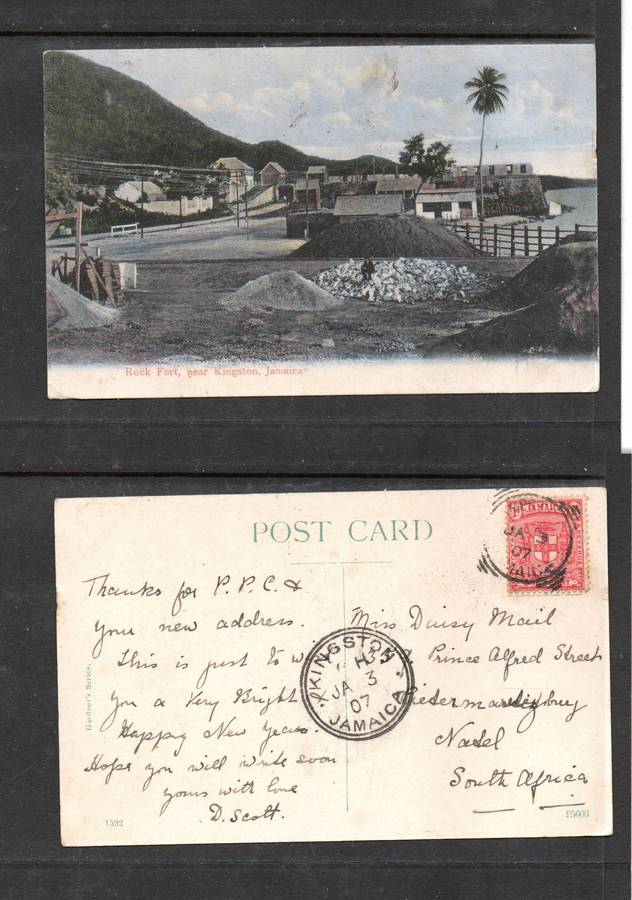 Rock Fort, near Kingston, Jamaica
POST CARD
JAMAICA
JA 3
07
Thanks for P.P.C. &
your new address.
This is just to
you a Very Bright
Happy New Year.
Hope you will write soon
yours with love
D. Scott.
KINGSTON
JA 3
07
JAMAICA
Miss Daisy Mail
Prince Alfred Street
Pietermaritzburg
Natal
South Africa
Gardner's Series.
1592